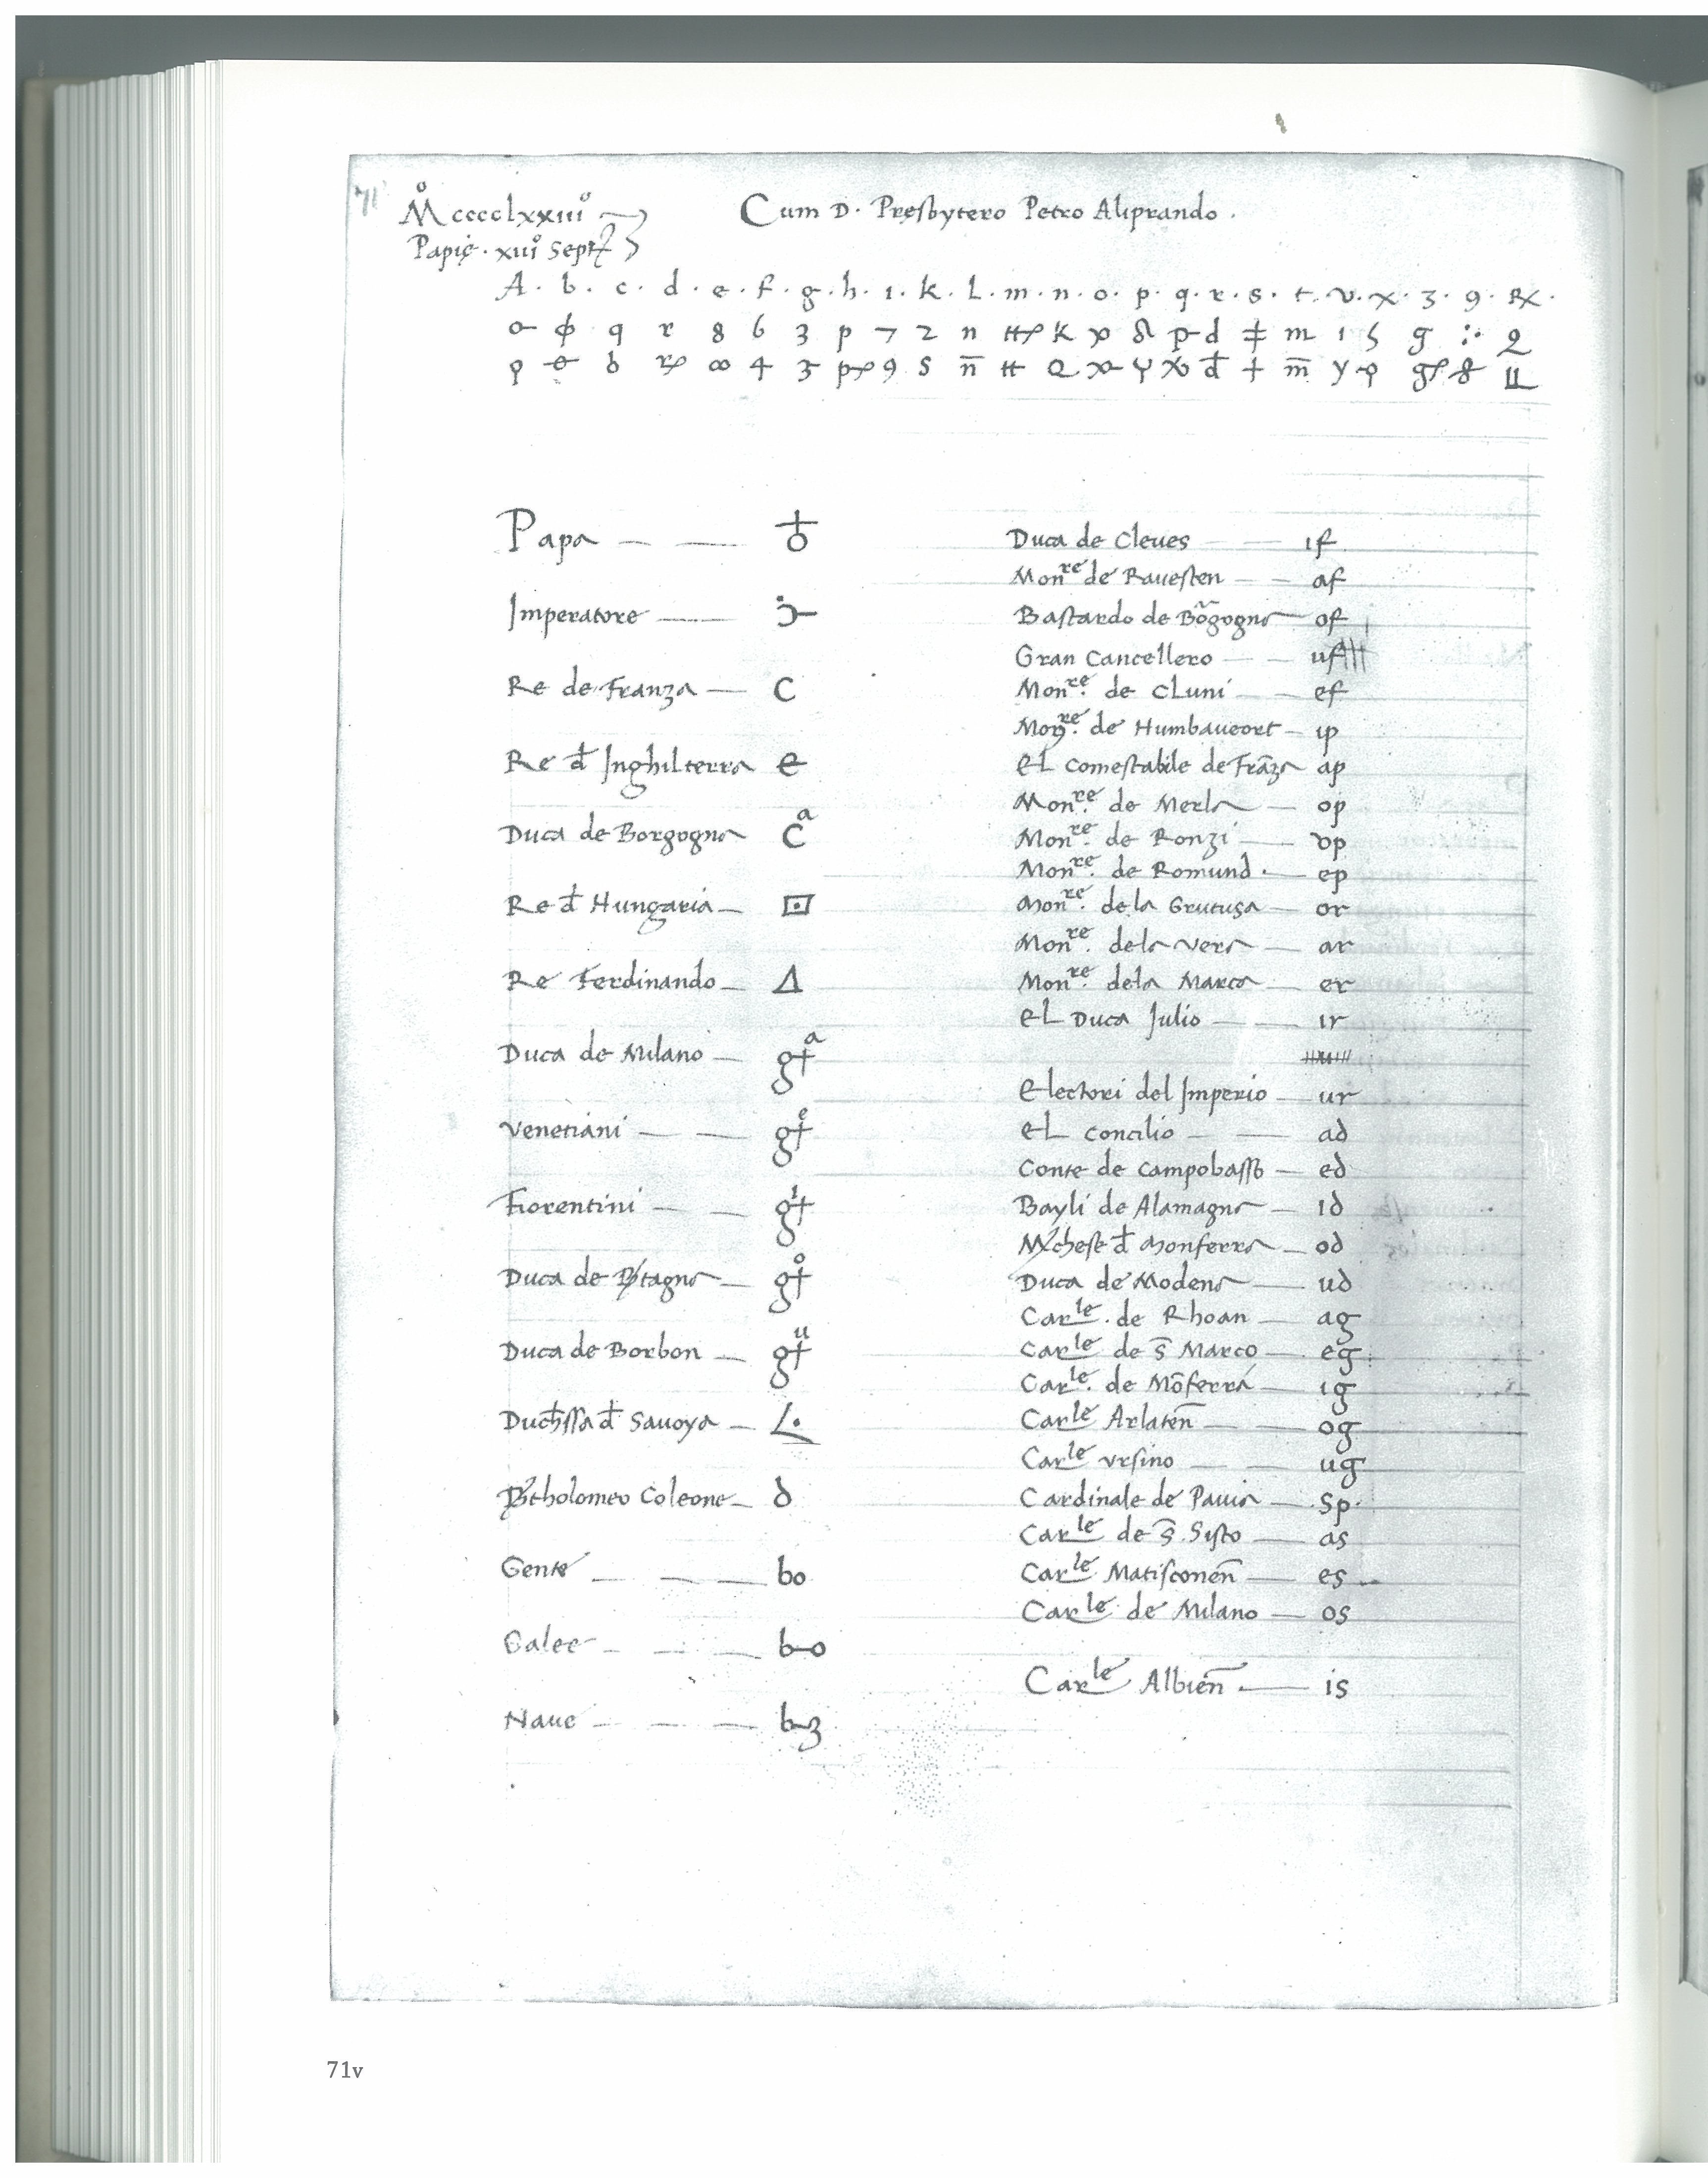 71
M̊cccclxxiii° Cum D. Presbytero Petro Aliprando.
Papię. xiii° Sept
A. b. c. d. e. f. g. h. i. k. L. m. n. o. p. q. r. s. t. v. x. 3. 9. Rx.
o- ϕ q r 8 6 3 p 7 2 n k d ‡ m 1 g
b ∞ 4 3 9 s n̄ đ + m̄ y
Papa ♁
Imperatore
Re de Franza C
Re đ Inghilterra e
Duca de Borgogna Cᵃ
Re đ Hungaria ⊡
Re Ferdinando Δ
Duca de Milano g+ᵃ
Venetiani g+ᵉ
Fiorentini g+ⁱ
Duca de Btagna g+ᵒ
Duca de Borbon g+ᵘ
Duchssa đ Savoya L.
Btholomeo Coleone d
Gente bo
Galee b-o
Nave b-3
Duca de Cleves if
Monʳᵉ de Ravesten af
Bastardo de Bõgogna of
Gran Cancellero uf
Monʳᵉ. de Cluni ef
Monʳᵉ. de Humbaucort ip
El comestabile de Frāza ap
Monʳᵉ. de Merla op
Monʳᵉ. de Ronzi vp
Monʳᵉ. de Romund. ep
Monʳᵉ. de la Grutusa or
Monʳᵉ. dela Vera ar
Monʳᵉ. dela Marca er
El Duca Julio ir
Electori del Imperio ur
El Concilio ad
Conte de Campobasso ed
Bayli de Alamagna id
Mchese đ Monferra od
Duca de Modena ud
Carˡᵉ. de Rhoan ag
Carˡᵉ de s̄ Marco eg
Carˡᵉ. de Mōferra ig
Carˡᵉ Arlaten̄ og
Carˡᵉ Ursino ug
Cardinale de Pavia sp
Carˡᵉ de s̄. Sisto as
Carˡᵉ Matisconen̄ es
Carˡᵉ de Milano os
Carˡᵉ Albien̄ is
71v